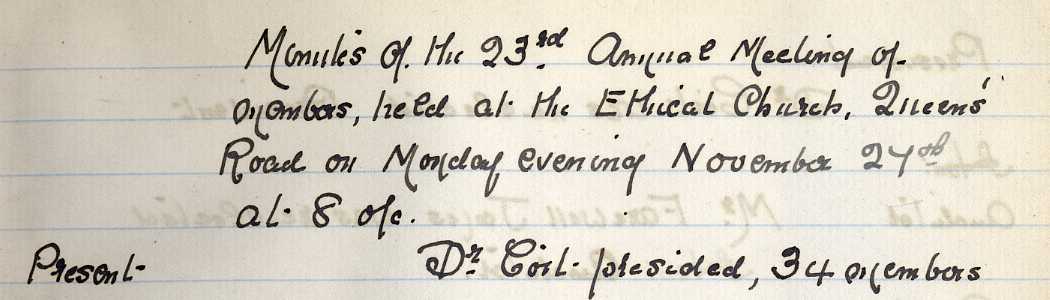 Minutes of the 23rd Annual Meeting of
members, held at the Ethical Church, Queens'
Road on Monday evening November 24th
at 8 o/c.
Present Dr Coit presided, 34 members